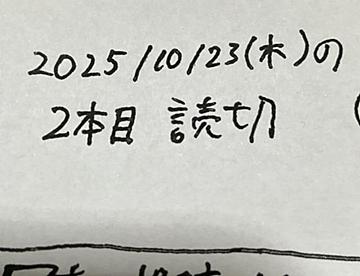 2025/10/23(木)の
2本目 読切